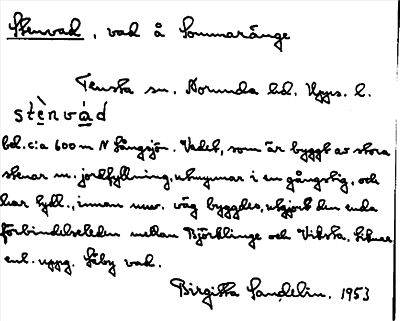 Stenvad, vad å Sommaränge
Tensta sn. Norunda hd. Upps. l.
stènvád
bel. c:a 600 m N Långsjön. Vadet, som är byggt av stora
stenar m. jordfyllning, utmynnar i en gångstig, och
har tydl., innan nuv. väg byggdes, utgjort den enda
förbindelseleden mellan Björklinge och Viksta. Liknar
enl. uppg. Låby vad.
Birgitta Sandelin. 1953